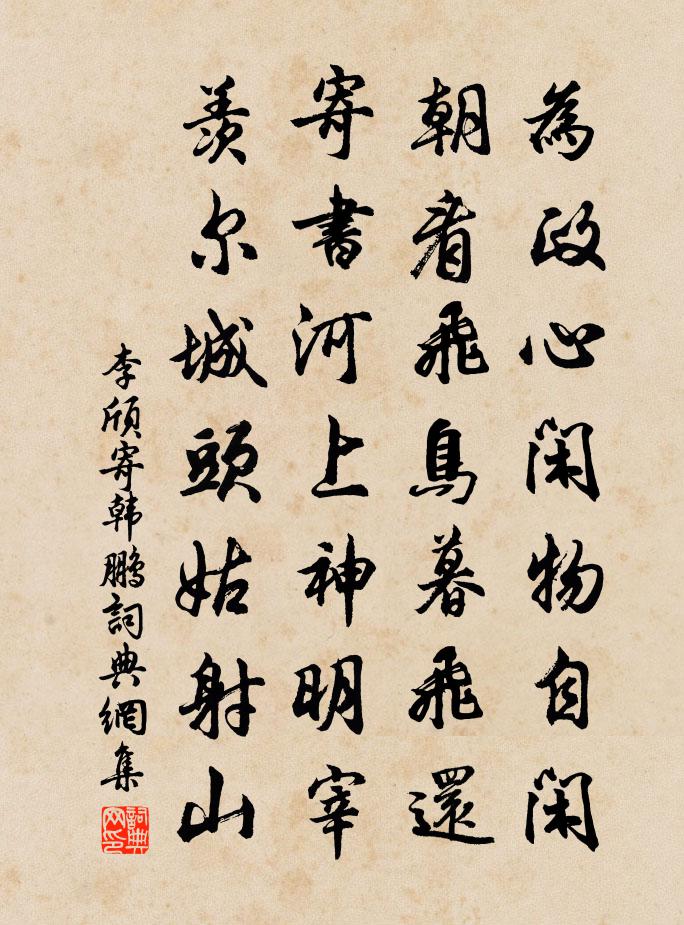 為政心閑物自閑
朝看飛鳥暮飛還
寄書河上神明宰
羨尔城頭姑射山
李頎寄韩鵬詞典網集
詞典网印